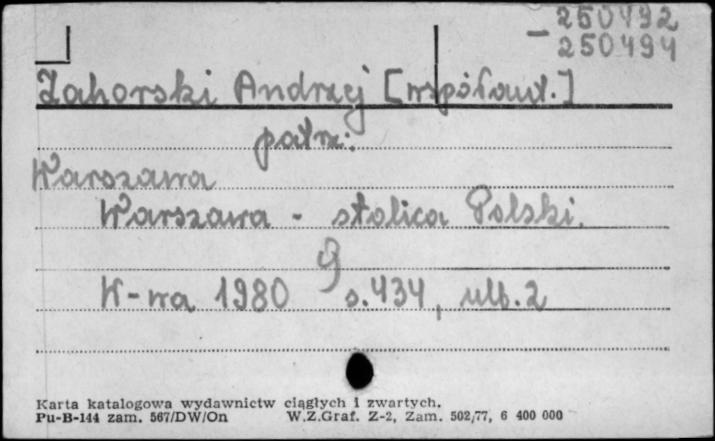 250492
– 250494
Zahorski Andrzej [współaut.]
patrz:
Warszawa
Warszawa - stolica Polski.
W-wa 1980 s.434, ulb.2
Karta katalogowa wydawnictw ciągłych i zwartych.
Pu-B-144 zam. 567/DW/On W.Z.Graf. Z-2, Zam. 502/77, 6 400 000